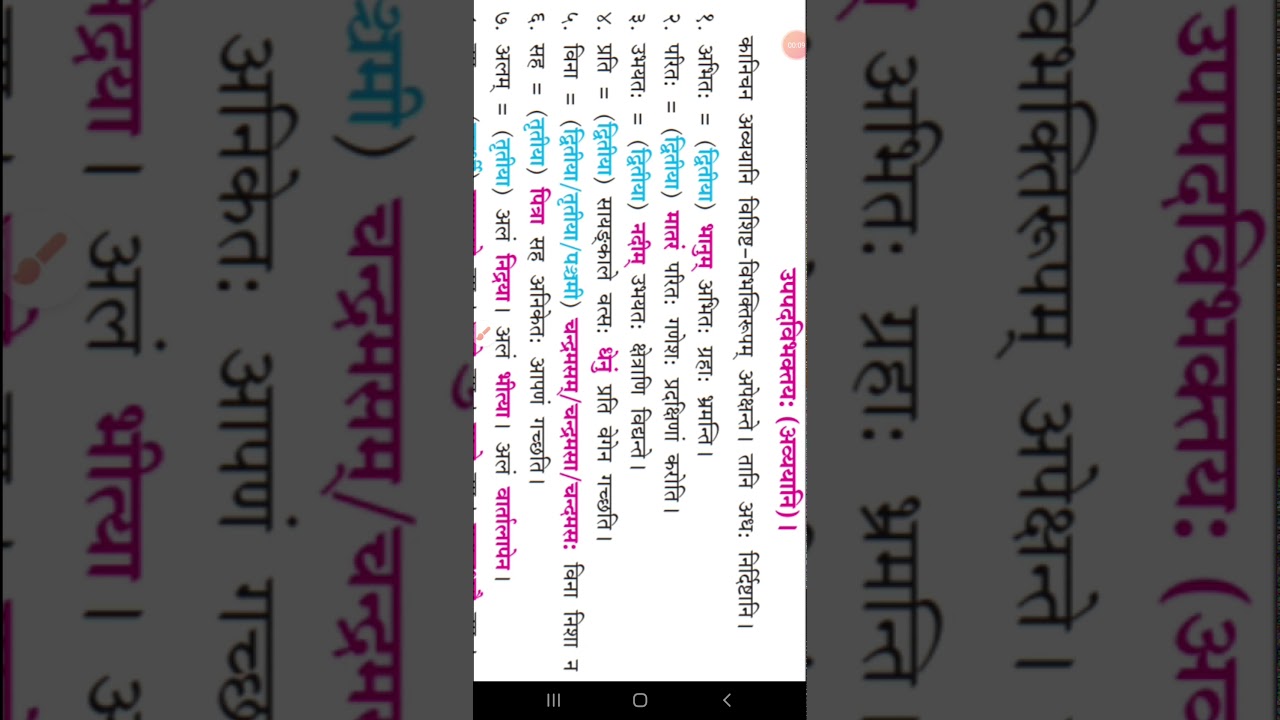 00:09
उपपदविभक्तयः (अव्ययानि)।
कानिचन अव्ययानि विशिष्ट-विभक्तिरूपम् अपेक्षन्ते। तानि अधः निर्दिष्टानि।
१. अभितः = (द्वितीया) भानुम् अभितः ग्रहाः भ्रमन्ति।
२. परितः = (द्वितीया) मातरं परितः गणेशः प्रदक्षिणां करोति।
३. उभयतः = (द्वितीया) नदीम् उभयतः क्षेत्राणि विद्यन्ते।
४. प्रति = (द्वितीया) सायङ्काले वत्सः धेनुं प्रति वेगेन गच्छति।
५. विना = (द्वितीया/तृतीया/पञ्चमी) चन्द्रमसम्/चन्द्रमसा/चन्द्रमसः विना निशा न
६. सह = (तृतीया) पित्रा सह अनिकेतः आपणं गच्छति।
७. अलम् = (तृतीया) अलं निद्रया। अलं भीत्या। अलं वार्तालापेन।